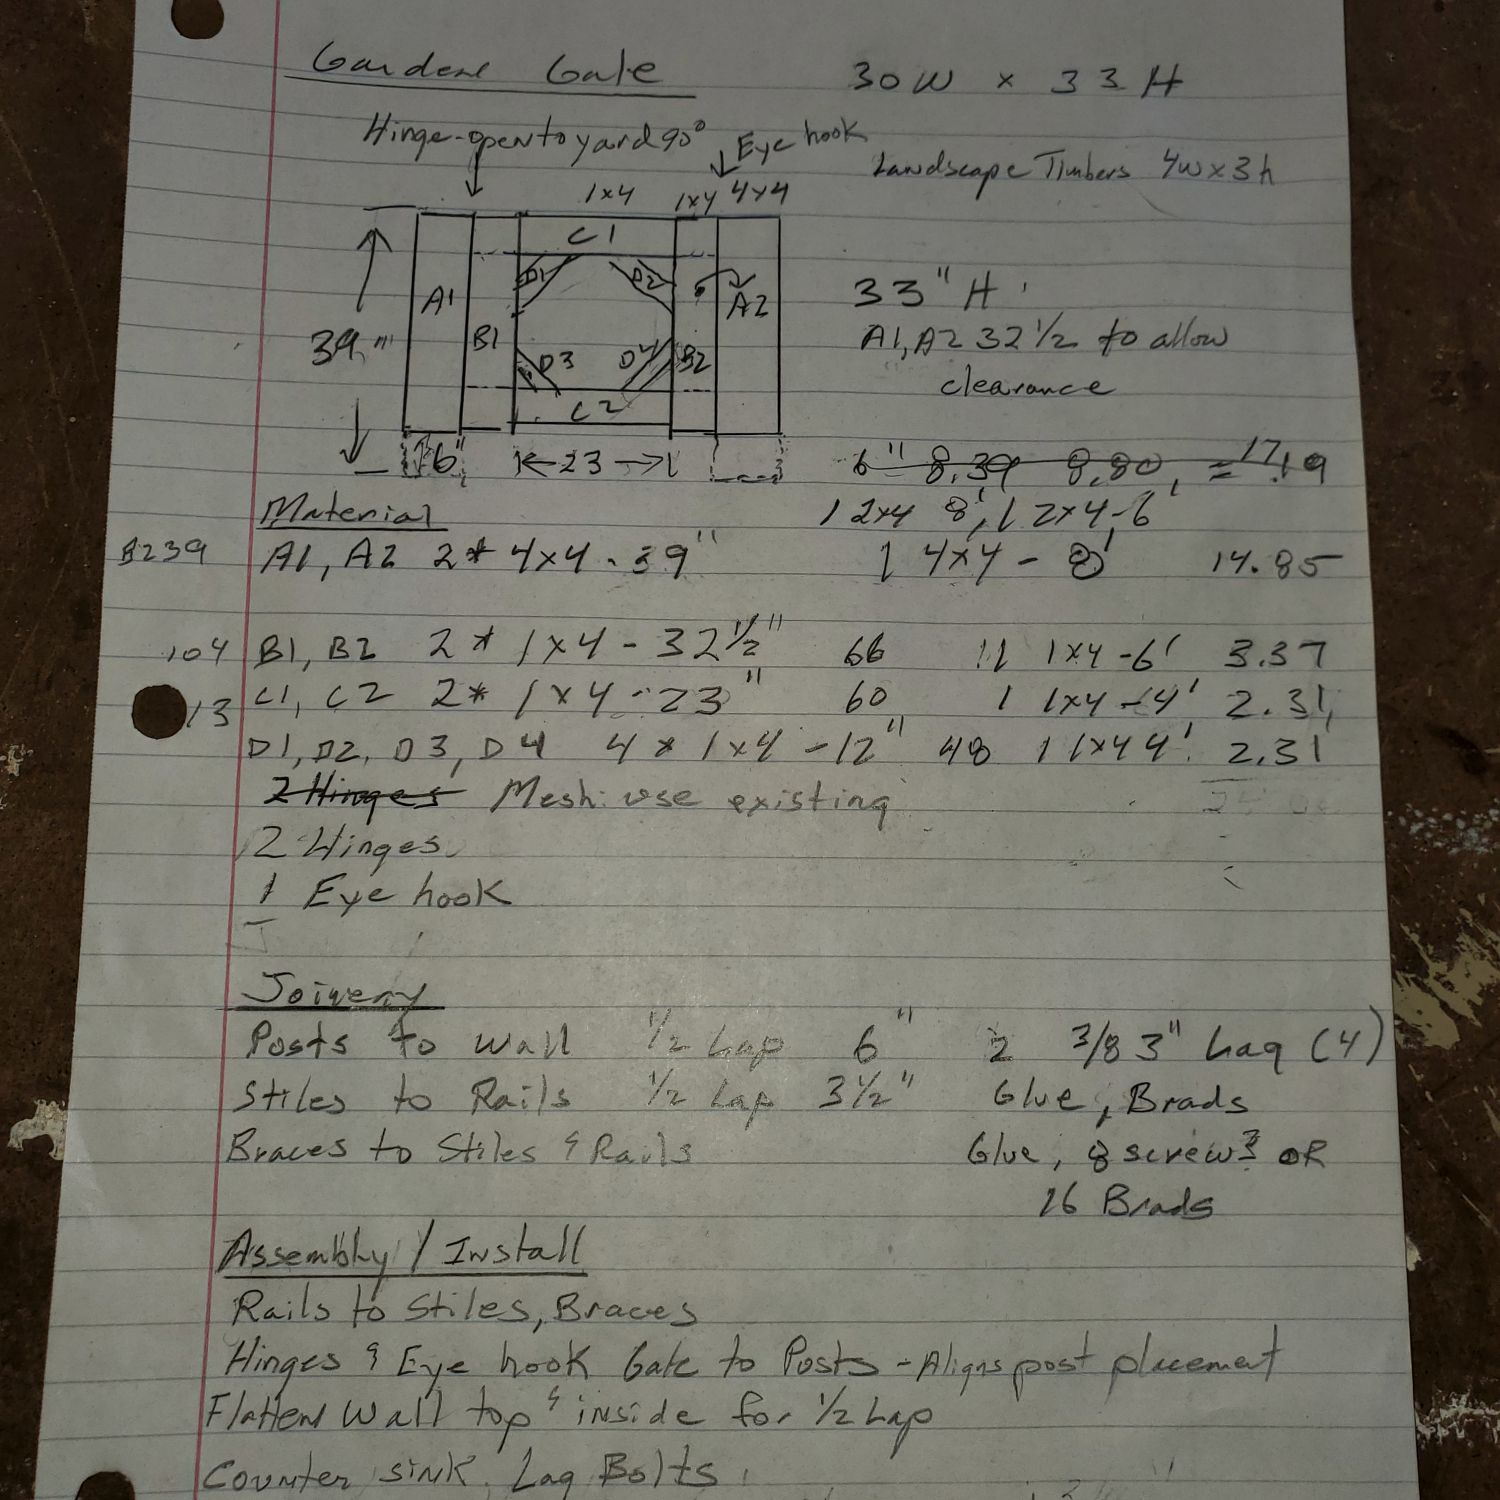 Garden Gate 30W x 33H
Hinge-open to yard 90° Eye hook
Landscape Timbers 4w x 3h
1x4 1x4 4x4
C1
D1 D2
A1 A2 33" H
39" B1 A1, A2 32 1/2 to allow
D3 D4 B2 clearance
C2
6" 23 6" 8.39 8.80 = 17.19
Material 1 2x4 8', 1 2x4-6'
A1, A2 2* 4x4 - 39" 1 4x4 - 8' 14.85
104 B1, B2 2* 1x4 - 32 1/2" 66 1 1x4-6' 3.37
13 C1, C2 2* 1x4 - 23" 60 1 1x4-4' 2.31
D1, D2, D3, D4 4* 1x4 - 12" 48 1 1x4 4' 2.31
2 Hinges Mesh: use existing
2 Hinges
1 Eye hook
Joinery
Posts to Wall 1/2 Lap 6" 2 3/8 3" Lag (4)
Stiles to Rails 1/2 Lap 3 1/2" Glue, Brads
Braces to Stiles & Rails Glue, 8 screws? OR
16 Brads
Assembly / Install
Rails to Stiles, Braces
Hinges & Eye hook Gate to Posts - Aligns post placement
Flatten Wall top & inside for 1/2 Lap
Counter sink Lag Bolts